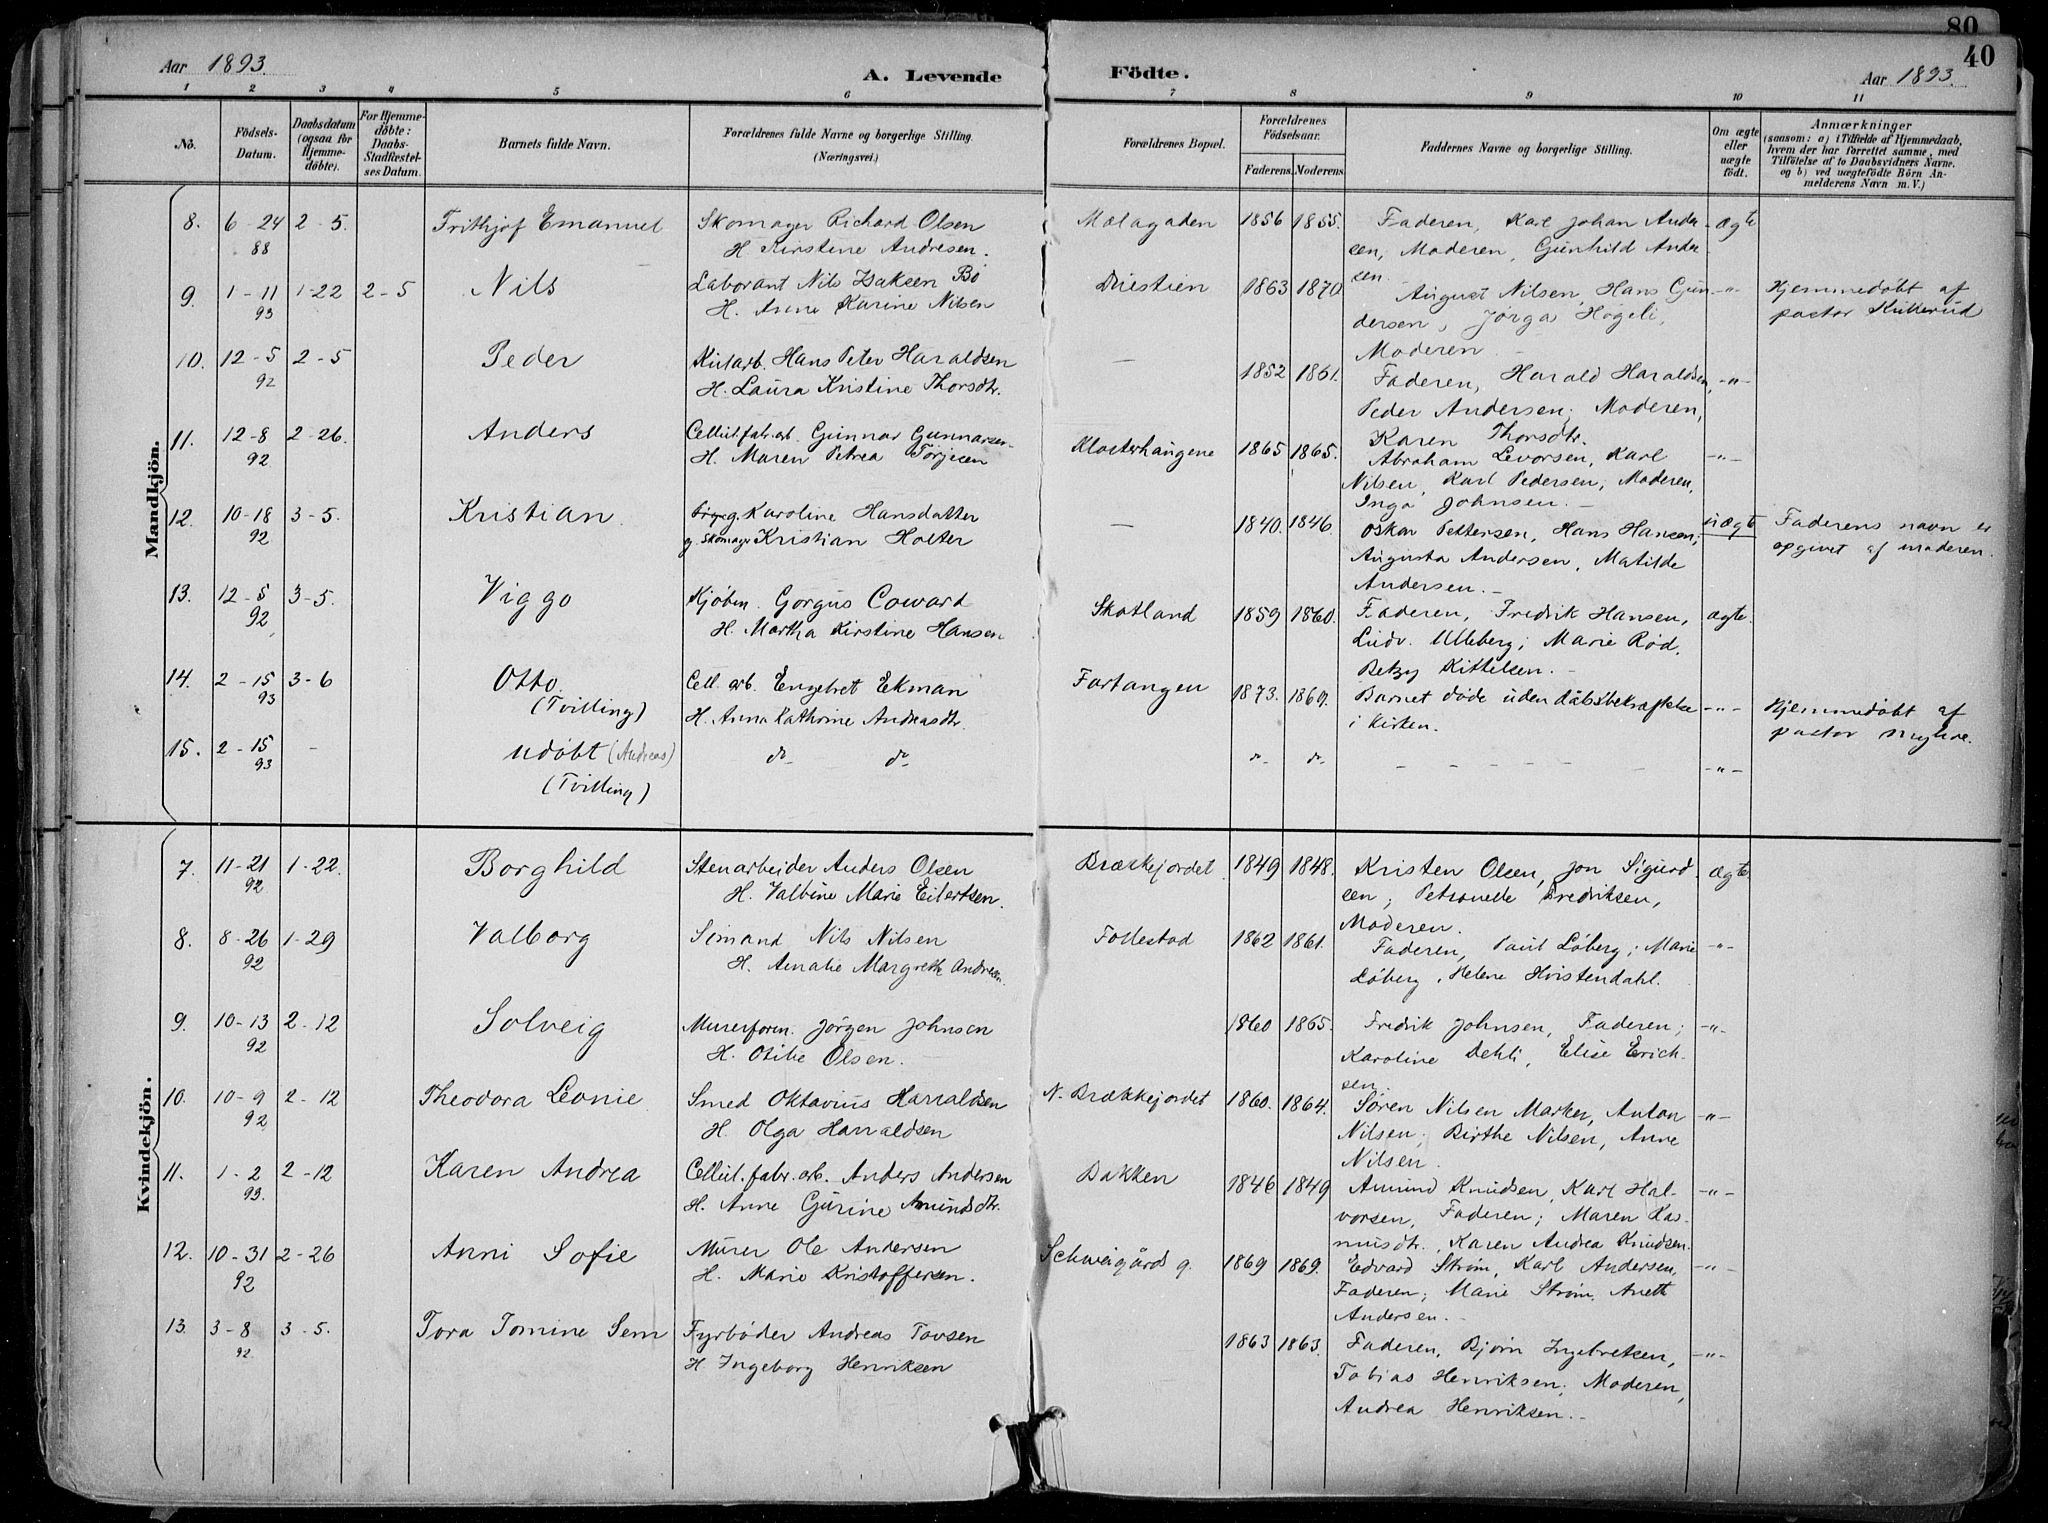 80
40
Aar 1893.
A. Levende
Födte.
Aar 1893.
1 2 3 4 5 6 7 8 9 10 11
No.
Födsels-
Datum.
Daabsdatum
(ogsaa for
Hjemme-
døbte).
For Hjemme-
døbte:
Daabs-
Stadfæstel-
ses Datum.
Barnets fulde Navn.
Forældrenes fulde Navne og borgerlige Stilling.
(Næringsvei.)
Forældrenes Bopæl.
Forældrenes
Födselsaar.
Faderens. Moderens.
Faddernes Navne og borgerlige Stilling.
Om ægte
eller
uægte
født.
Anmærkninger
(saasom: a) i Tilfælde af Hjemmedaab,
hvem der har forrettet samme, med
Tilföielse af to Daabsvidners Navne.
og b) ved uægtefödte Börn An-
melderens Navn m. V.)
Mandkjön.
8. 6-24 88 2-5. Frithjof Emanuel
Skomager Richard Olsen
H. Kirstine Andresen.
Mælagaden 1856 1855.
Faderen, Karl Johan Ander-
sen, Moderen, Gunhild Ander-
sen.
ægte
9. 1-11 93 1-22 2-5 Nils
Laborant Nils Isaksen Bø
H. Anne Karine Nilsen
Duestien 1863 1870
August Nilsen, Hans Gun-
dersen, Jørga Høgeli,
Moderen.
-"-
Hjemmedøbt af
pastor
10. 12-5 92 2-5 Peder
Hans Peter Haraldsen
H. Laura Kristine Thorsdtr.
— 1852 1861.
Faderen, Harald Haraldsen,
Peder Andersen; Moderen,
Karen Thorsdtr.
-"-
11. 12-8 92 2-26. Anders
Cellul.fabr.arb. Gunnar Gunnarsen
H. Maren Petrea Torjesen
Klosterhaugene 1865 1865.
Abraham Levorsen, Karl
Nilsen, Karl Pedersen; Moderen,
Inga Johnsen.-
-"-
12. 10-18 92 3-5. Kristian
Karoline Hansdatter
g. Skomager Kristian Holter
— 1840. 1846.
Oskar Pettersen, Hans Hansen;
Augusta Andersen, Matilde
Andersen.-
uægte
Faderens navn er
opgivet af moderen.
13. 12-5 92 3-5. Viggo
Kjøbm. Gorgus Coward
H. Martha Kirstine Hansen
Skotland 1859 1860.
Faderen, Fredrik Hansen,
Ludv. Ulleberg; Marie Rød,
Betzy Kittelsen.-
ægte.
14. 2-15 93 3-6 Otto.
(Tvilling)
Cell. arb. Engebret Ekman
H. Anna Kathrine Andreasdtr.
Fartangen 1873. 1869.
Barnet døde uden dåbsbekræftelse
i Kirken.
-"-
Hjemmedøbt af
pastor
15. 2-15 93 - udøbt (Andreas)
(Tvilling)
do do do do - - - - - - -"-
Kvindekjön.
7. 11-21 92 1-22. Borghild
Stenarbeider Anders Olsen
H. Valbine Marie Eilertsen.
Brækkejordet 1849 1848.
Kristen Olsen, Jon Sigurd-
sen; Petronelle Fredriksen,
Moderen.
ægte
8. 8-26 92 1-29 Valborg
Sømand Nils Nilsen
H. Amalie Margrethe Andresen.
Follestad 1862 1861.
Faderen, Paul Løberg; Marie
Løberg, Helene Hvistendahl.
-"-
9. 10-13 92 2-12 Solveig
Murerform. Jørgen Johnsen
H. Otilie Olsen.
1860 1865.
Fredrik Johnsen, Faderen;
Karoline Dehli, Elise Erich-
sen.
-"-
10. 10-9 92 2-12 Theodora Leonie
Smed Oktavius Harraldsen
H. Olga Harraldsen
N. Brækkejordet 1860. 1864.
Søren Nilsen Marker, Anton
Nilsen; Birthe Nilsen, Anne
Nilsen.
-"-
11. 1-2 93. 2-12 Karen Andrea
Cellul.fabr.arb. Anders Andersen
H. Anne Gurine Amundsdtr.
Bakken 1846 1849
Amund Knudsen, Karl Hal-
vorsen, Faderen; Maren Ras-
musdtr., Karen Andrea Knudsen.
-"-
12. 10-31 92 2-26 Anni Sofie
Murer Ole Andersen
H. Marie Kristoffersen.
Schweigårds g. 1869 1869.
Edvard Strøm, Karl Andersen,
Faderen; Marie Strøm, Anette
Andersen.-
-"-
13. 3-8 92 3-5. Tora Tomine Sem
Fyrbøder Andreas Tovsen
H Ingeborg Henriksen
1863 1863.
Faderen, Bjørn Ingebretsen,
Tobias Henriksen; Moderen,
Andrea Henriksen.-
-"-